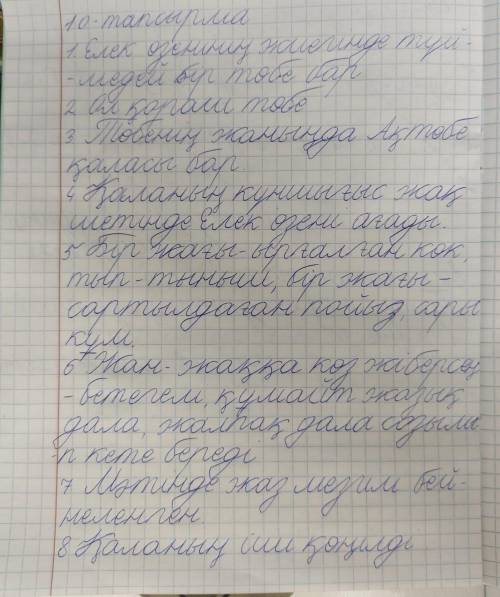 10-тапсырма
1. Елек өзенінің жиегінде түй-
-медей бір төбе бар
2 ол қараша төбе
3 Төбенің жанында Ақтөбе
қаласы бар
4 Қаланың күншығыс жақ
шетінде Елек өзені ағады.
5 Бір жағы-ырғалған көк,
тып-тыныш, бір жағы-
сартылдаған пойыз, сары
құм.
6 Жан-жаққа көз жіберсең
-бетегем, құмайт жазық
дала, жалпақ дала созылы-
п кете береді
7 Мәтінде жаз мезгілі бей-
неленген.
8 Қаланың іші көңілді